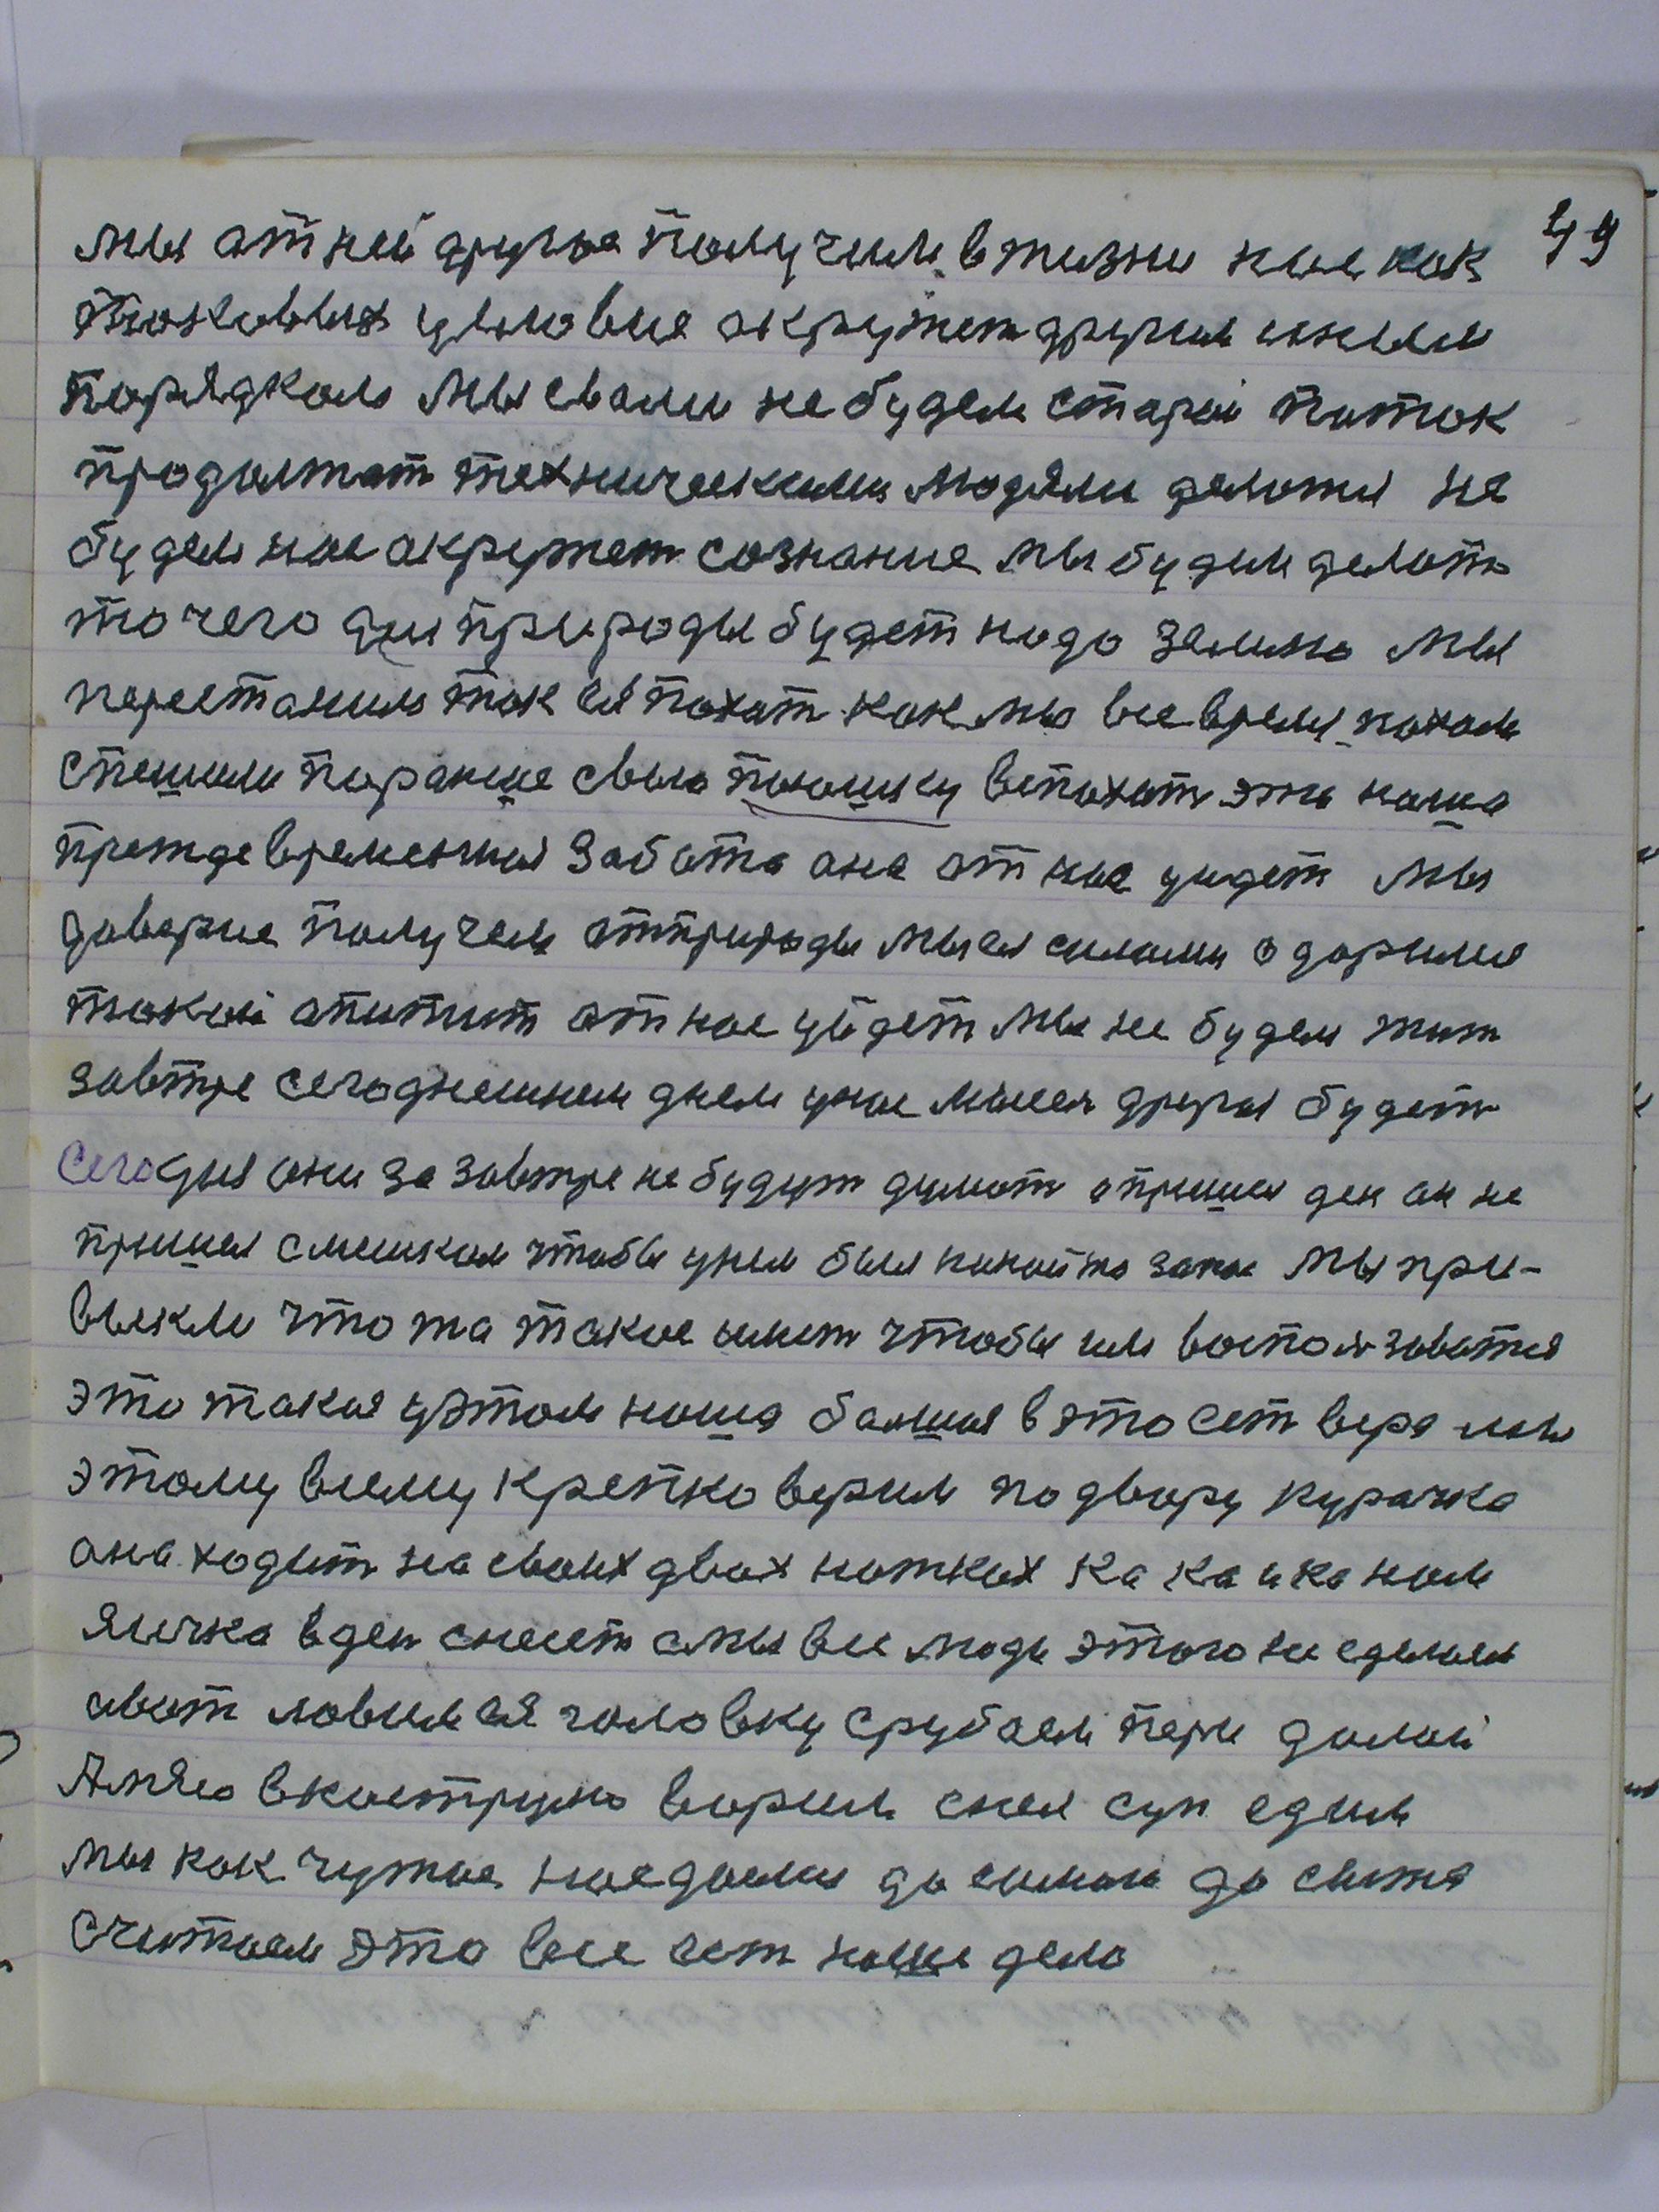 49
мы от ней другое получим в жизни нас как
таковых условия окружет другим иным
порядком мы сваим не будем старой поток
продолжат техническими людями делотя не
будем нас окружет сознание мы будем делоть
то чего для природы будет надо землю мы
перестаним так ея похат как мы все время похали
спешили поранше свою пошику вспохат эта наша
преждевременная забота она от нас уйдет мы
доверие получем от природы мы ея силами одаримся
такой апитит от нас уйдет мы не будем жит
завтре сегоднешнем днем у нас мысел другая будет
Сегодня они за завтре не будут думат а пришел ден он не
пришел с мешком чтобы у нем был какойто запас мы при-
выкли что та такое имет чтобы им воспользоватся
это такая у этом наша балшая в это ест вера мы
этому всему крепко верим по двору курачка
она ходит на своих двох ножках ка ка и ка нам
яичка в ден снесет а мы все люди этого не сделаем
а вот ловим ея головку срубаем перя долой
А мясо в костдрулю ворим с нея суп едим
мы как чужое наедаемся до самой до сытя
считаем это все ест наше дело